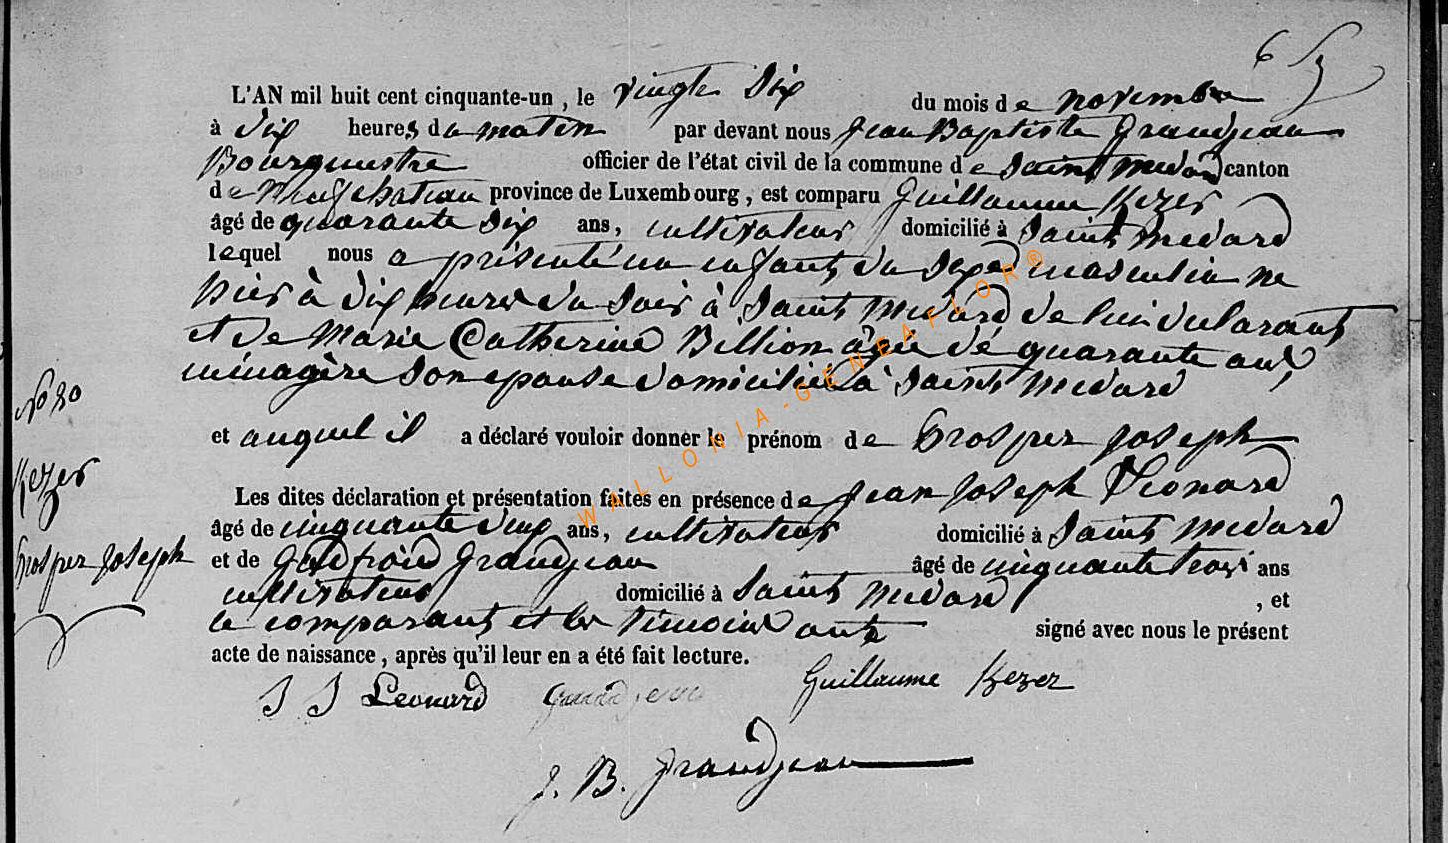 6
L'AN mil huit cent cinquante-un, le vingt six du mois de novembre
à dix heures du matin par devant nous Jean Baptiste Grandjean
Bourgmestre officier de l'état civil de la commune de Saint Medard canton
de Neufchateau province de Luxembourg, est comparu Guillaume Kezer
âgé de quarante six ans, cultivateur domicilié à Saint Medard
lequel nous a présenté un enfant du sexe masculin né
hier à dix heures du soir à Saint Medard de lui declarant
et de Marie Catherine Billion agée de quarante ans,
ménagère son epouse domiciliée à Saint Medard
No 80
et auquel il a déclaré vouloir donner le prénom de Prosper Joseph
Kezer
Prosper Joseph
Les dites déclaration et présentation faites en présence de Jean Joseph Léonard
âgé de cinquante deux ans, cultivateur domicilié à Saint Medard
et de Godfroid Grandjean âgé de cinquante trois ans
cultivateur domicilié à Saint Medard, et
le comparant et les témoins ont signé avec nous le présent
acte de naissance, après qu'il leur en a été fait lecture.
J J Leonard Grandjean Guillaume Kezer
J. B. Grandjean
WALLONIA-GENEAFLOR®